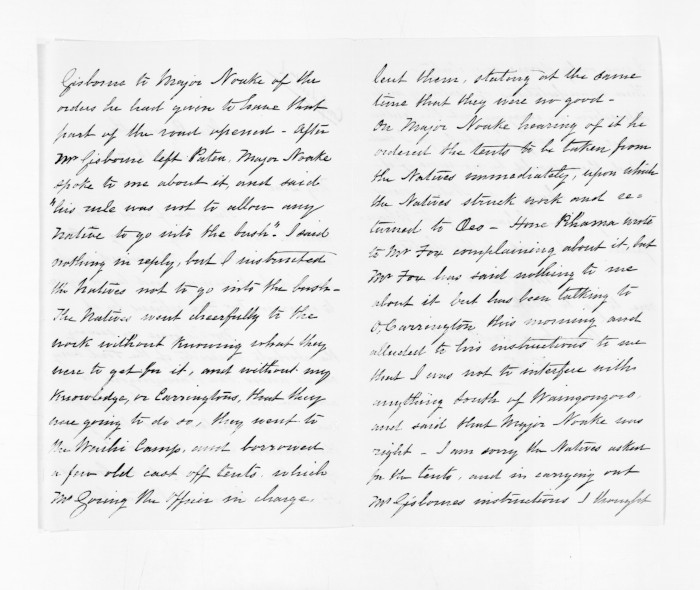 Gisborne to Major Noake of the
orders he had given to have that
part of the road opened - After
Mr Gisborne left Patea. Major Noake
spoke to me about it, and said
"his rule was not to allow any
Native to go into the bush". I said
nothing in reply, but I instructed
the Natives not to go into the bush -
The Natives went cheerfully to the
work without knowing what they
were to get for it, and without my
knowledge, or Carringtons, that they
were going to do so, they went to
the Waihi Camp, and borrowed
a few old cast off tents. which
Mr Goring the officer in charge.
lent them, stating at the same
time that they were no good -
On Major Noake hearing of it he
ordered the tents to be taken from
the Natives immediately, upon which
the Natives struck work and re-
turned to Oeo - Hone Pihama wrote
to Mr Fox complaining about it, but
Mr Fox has said nothing to me
about it but has been talking to
O, Carrington this morning and
alluded to his instructions to me
that I was not to interfere with
anything south of Waingongoro.
and said that Major Noake was
right - I am sorry the Natives asked
for the tents, and in carrying out
Mr Gisbornes instructions I thought